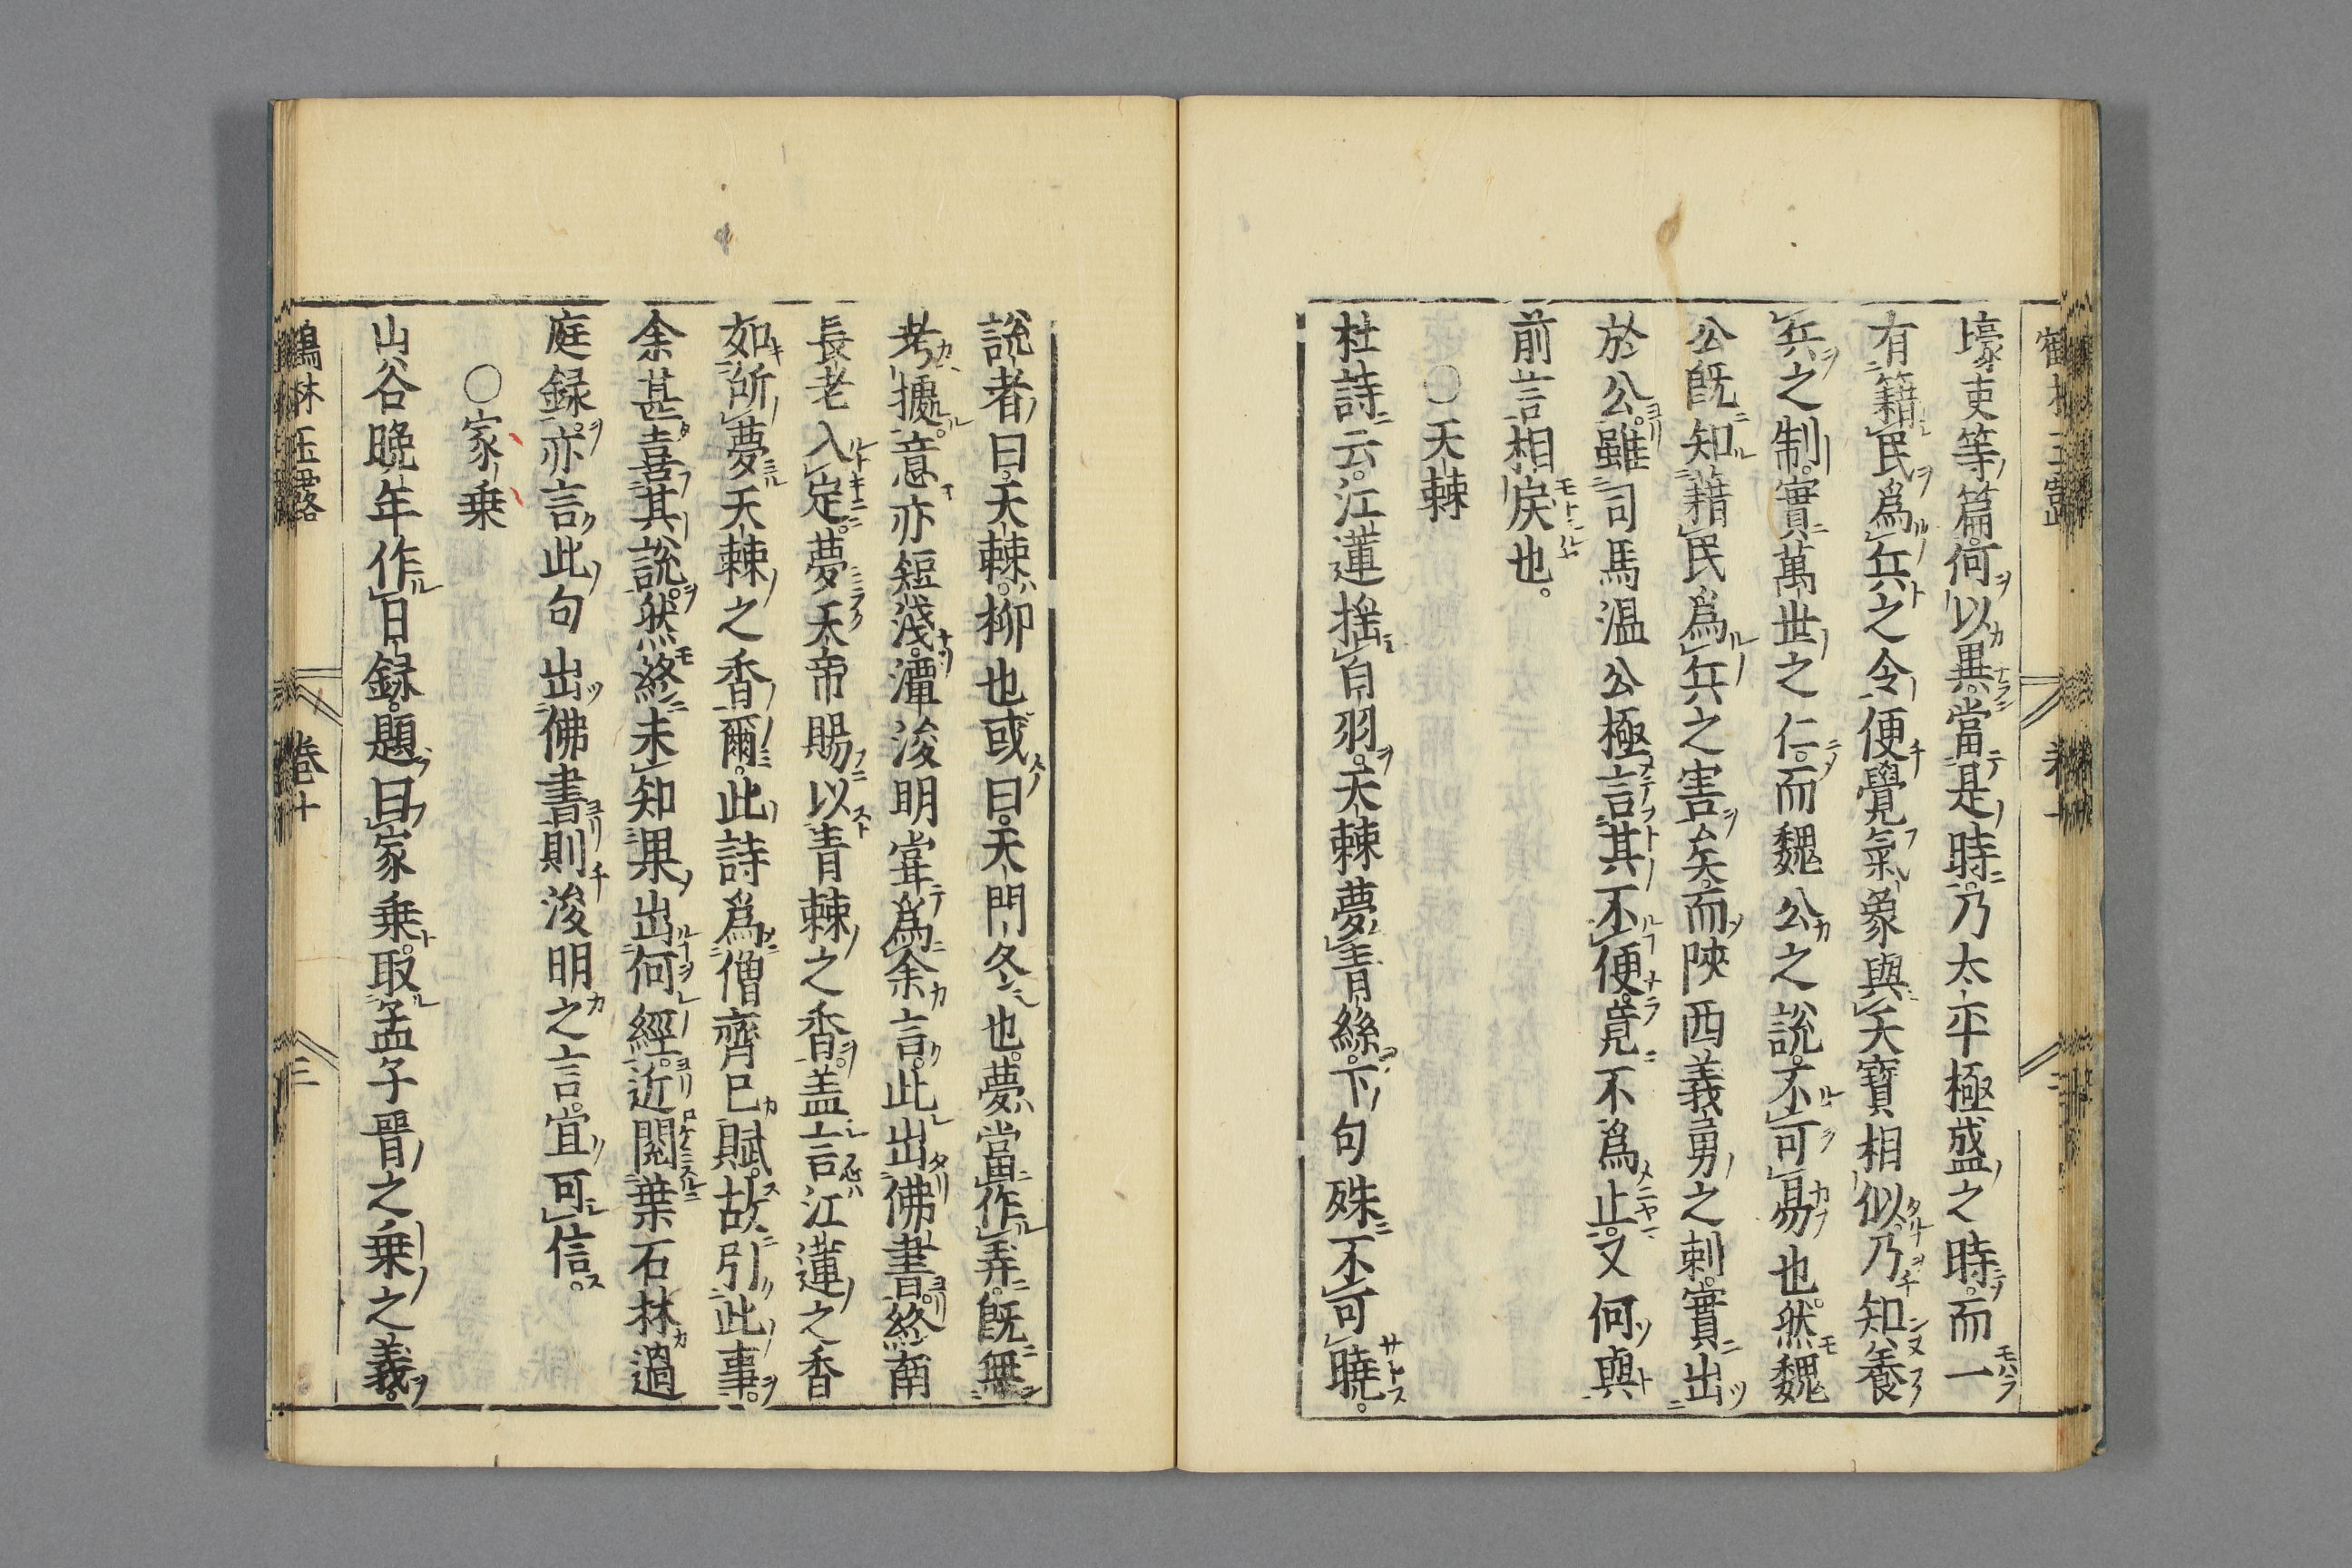 壕吏等篇何以異當是時乃太平極盛之時而一
有籍民爲兵之令便覺氣象與天寶相似乃知養
兵之制實萬世之仁而魏公之說不可易也然魏
公既知籍民爲兵之害矣而陝西義勇之刺實出
於公雖司馬溫公極言其不便竟不爲止又何與
前言相戾也
○天棘
杜詩云江蓮搖白羽天棘夢青絲下句殊不可曉
說者曰天棘柳也或曰天門冬也夢當作弄既無
考據意亦短淺潭浚明嘗爲余言此出佛書終南
長老入定夢天帝賜以青棘之香盖言江蓮之香
如所夢天棘之香爾此詩爲僧齊已賦故引此事
余甚喜其說然終未知果出何經近閱葉石林過
庭録亦言此句出佛書則浚明之言宜可信
○家乗
山谷晩年作日録題曰家乗取孟子晋之乗之義
鶴林玉露 卷十 三